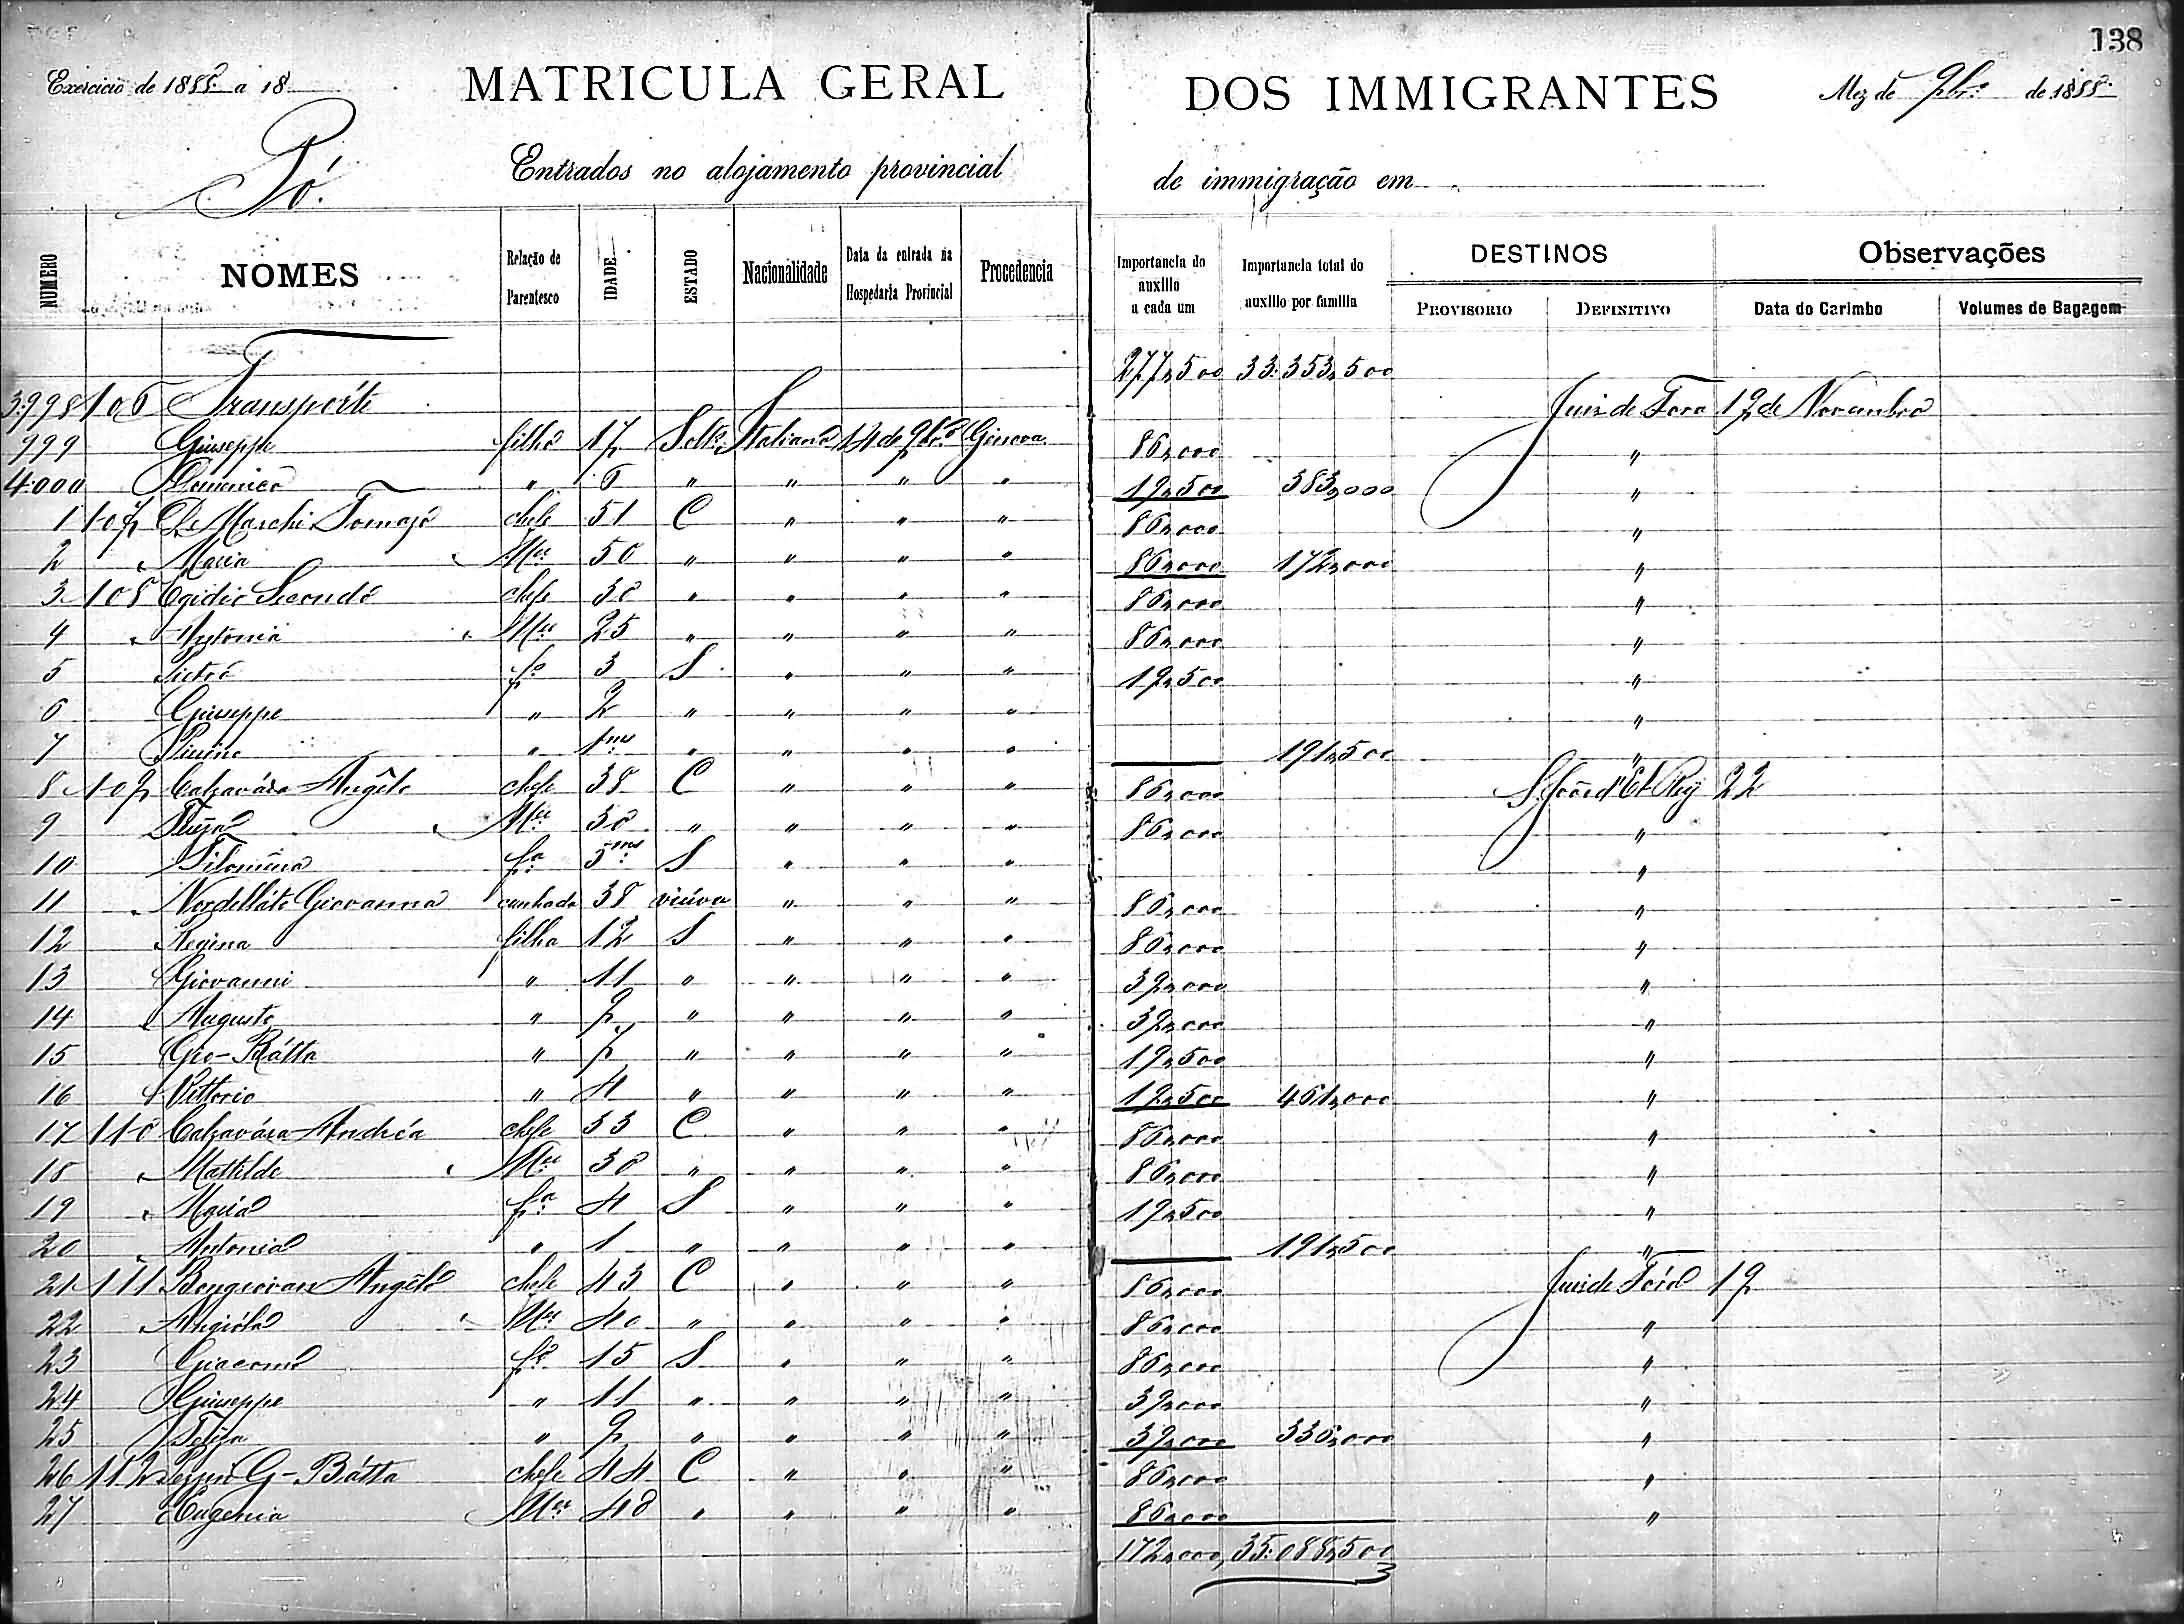 138
Exercicio de 1888 a 18
MATRICULA GERAL DOS IMMIGRANTES
Mez de 9br.º de 1888
Pó.
Entrados no alojamento provincial de immigração em
NUMERO NOMES Relação de Parentesco IDADE ESTADO Nacionalidade Data da entrada na Hospedaria Provincial Procedencia Importancia do auxilio a cada um Importancia total do auxilio por familia DESTINOS PROVISORIO DEFINITIVO Observações Data do Carimbo Volumes de Bagagem
Transporte 277,500 33:353,500
3:998 106 Giuseppe filho 17 Solt.º Italiana 14 de 9br.º Genova 86,000 Juiz de Fora 19 de Novembro
999 Domenico " 6 " " " " 19,500 383,000 "
4:000 107 De Marchi chefe 51 C " " " 86,000 "
1 " Maria " Mer 50 " " " " 86,000 172,000 "
2 108 Egidio Secondo chefe 30 " " " " 86,000 "
3 " Antonia " Mer 25 " " " " 86,000 "
4 Pietro fº 3 S " " " 19,500 "
5 Giuseppe " 2 " " " " "
6 " 1ms " " " " 191,500 "
7 109 Calzavára Angelo chefe 38 C " " " 86,000 S. João d'El Rey 22
8 Luiza " Mer 30 " " " " 86,000 "
9 Filomena fª 5ms S " " " "
10 " Giovanna cunhada 38 viúva " " " 86,000 "
11 Regina filha 12 S " " " 86,000 "
12 Giovanni " 11 " " " " 39,000 "
13 Augusto " 9 " " " " 39,000 "
14 Gio-Bátta " 7 " " " " 19,500 "
15 Vittorio " 4 " " " " 19,500 461,000 "
16 110 Calzavára Andréa chefe 33 C " " " 86,000 "
17 " Mathilde " Mer 30 " " " " 86,000 "
18 " Maria fª 4 S " " " 19,500 "
19 " Antonia " 1 " " " " 191,500 "
20 111 Bongiovan Angelo chefe 43 C " " " 86,000 Juiz de Fóra 19
21 " Angióla " Mer 40 " " " " 86,000 "
22 Giacomo fº 15 S " " " 86,000 "
23 Giuseppe " 11 " " " " 39,000 "
24 " 9 " " " " 39,000 336,000 "
25 112 G-Bátta chefe 44 C " " " 86,000 "
26 Eugenia Mer 40 " " " " 86,000 "
27
172,000 35:088,500